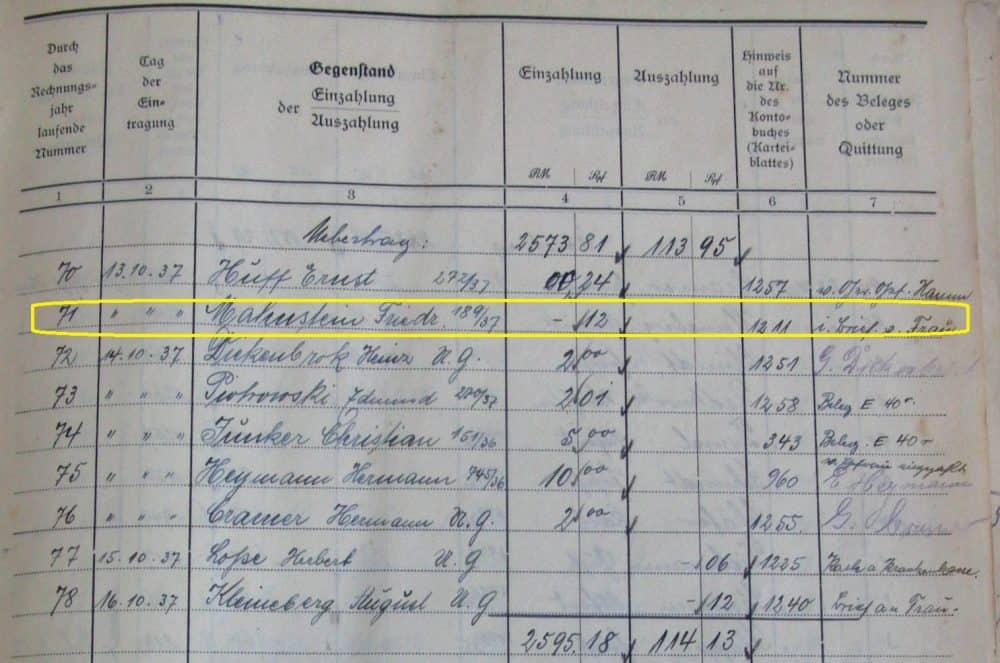 Durch das Rechnungs-jahr laufende Nummer | Tag der Ein-tragung | Gegenstand der Einzahlung / Auszahlung | Einzahlung | Auszahlung | Hinweis auf die Nr. des Konto-buches (Kartei-blattes) | Nummer des Beleges oder Quittung
RM Rpf RM Rpf
1 2 3 4 5 6 7
Uebertrag: 2573 81 113 95
70 13.10.37 Huff Ernst 272/37 00,24 1257 Hamm
71 " " " Maknstein Friedr. 189/37 - 12 1211 i. Brief v. Frau
72 14.10.37 Dickenbrok Heinz U.G. 2,00 1251 G.
73 " " " Piotrowski Edmund 2 01 1258 Beleg E 40
74 " " " Junker Christian 151/36 5,00 343 Beleg. E 40
75 " " " Heymann Hermann 745/36 10,00 960 Heymann
76 " " " Cramer Hermann U.G. 2,00 1255 G.
77 15.10.37 Loße Herbert U.G - 06 1225 Krankenkasse.
78 16.10.37 Kleineberg August U.G - 12 1240 Brief an Frau.
2595.18 114 13